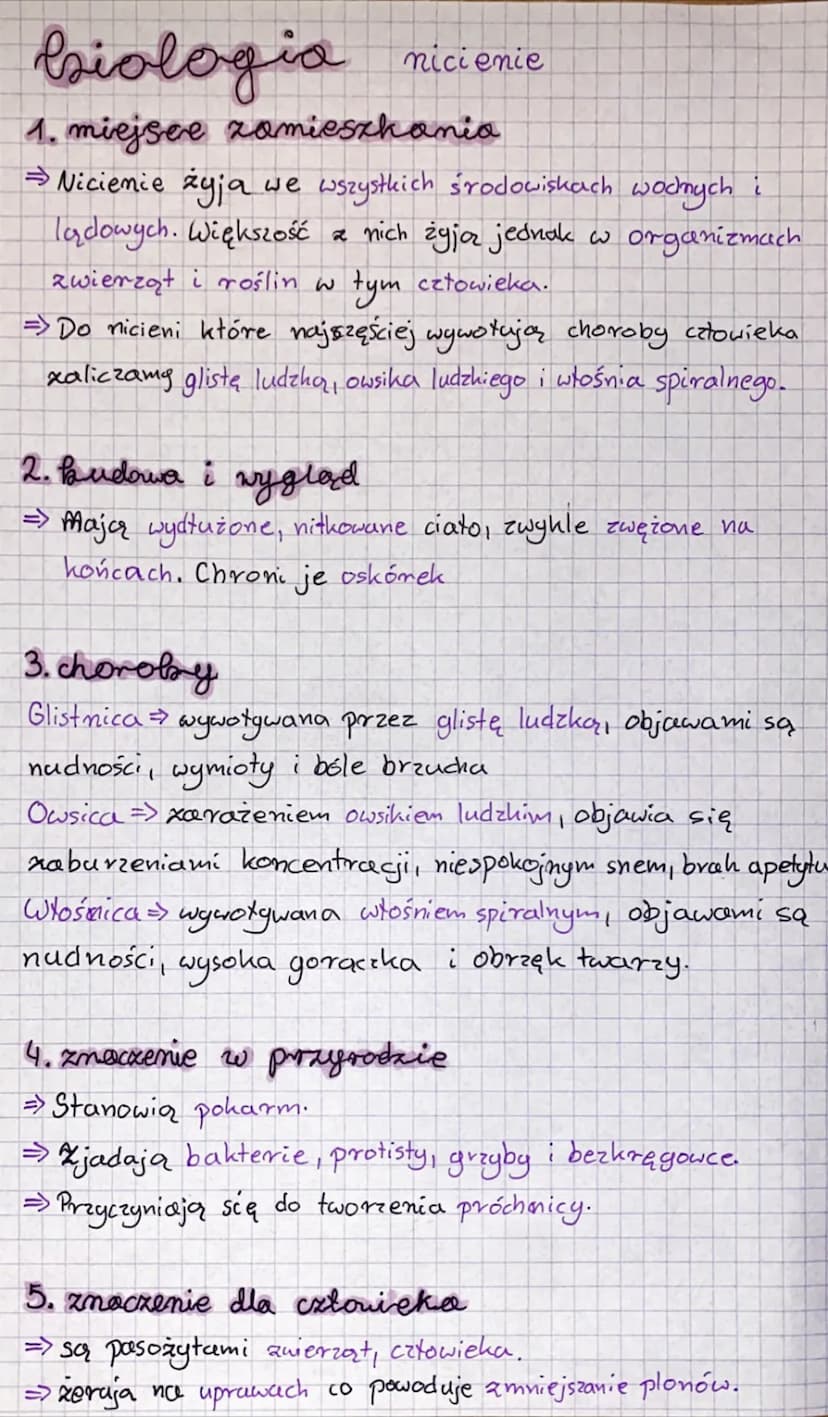 biologia nicienie
1. miejsce zamieszkania
⇒ Nicienie żyją we wszystkich środowiskach wodnych i
lądowych. Większość z nich żyją jednak w organizmach
zwierząt i roślin w tym człowieka.
⇒ Do nicieni które najszęściej wywołują choroby człowieka
zaliczamy glistę ludzką, owsika ludzkiego i włośnia spiralnego.
2. budowa i wygląd
⇒ Mają wydłużone, nitkowane ciało, zwykle zwężone na
końcach. Chroni je oskórek
3. choroby
Glistnica ⇒ wywoływana przez glistę ludzką, objawami są
nudności, wymioty i bóle brzucha
Owsica ⇒ zarażeniem owsikiem ludzkim, objawia się
zaburzeniami koncentracji, niespokojnym snem, brak apetytu
Włośnica ⇒ wywoływana włośniem spiralnym, objawami są
nudności, wysoka gorączka i obrzęk twarzy.
4. znaczenie w przyrodzie
⇒ Stanowią pokarm.
⇒ Zjadają bakterie, protisty, grzyby i bezkręgowce.
⇒ Przyczyniają się do tworzenia próchnicy.
5. znaczenie dla człowieka
⇒ są pasożytami zwierząt, człowieka.
⇒ żerują na uprawach co powoduje zmniejszanie plonów.